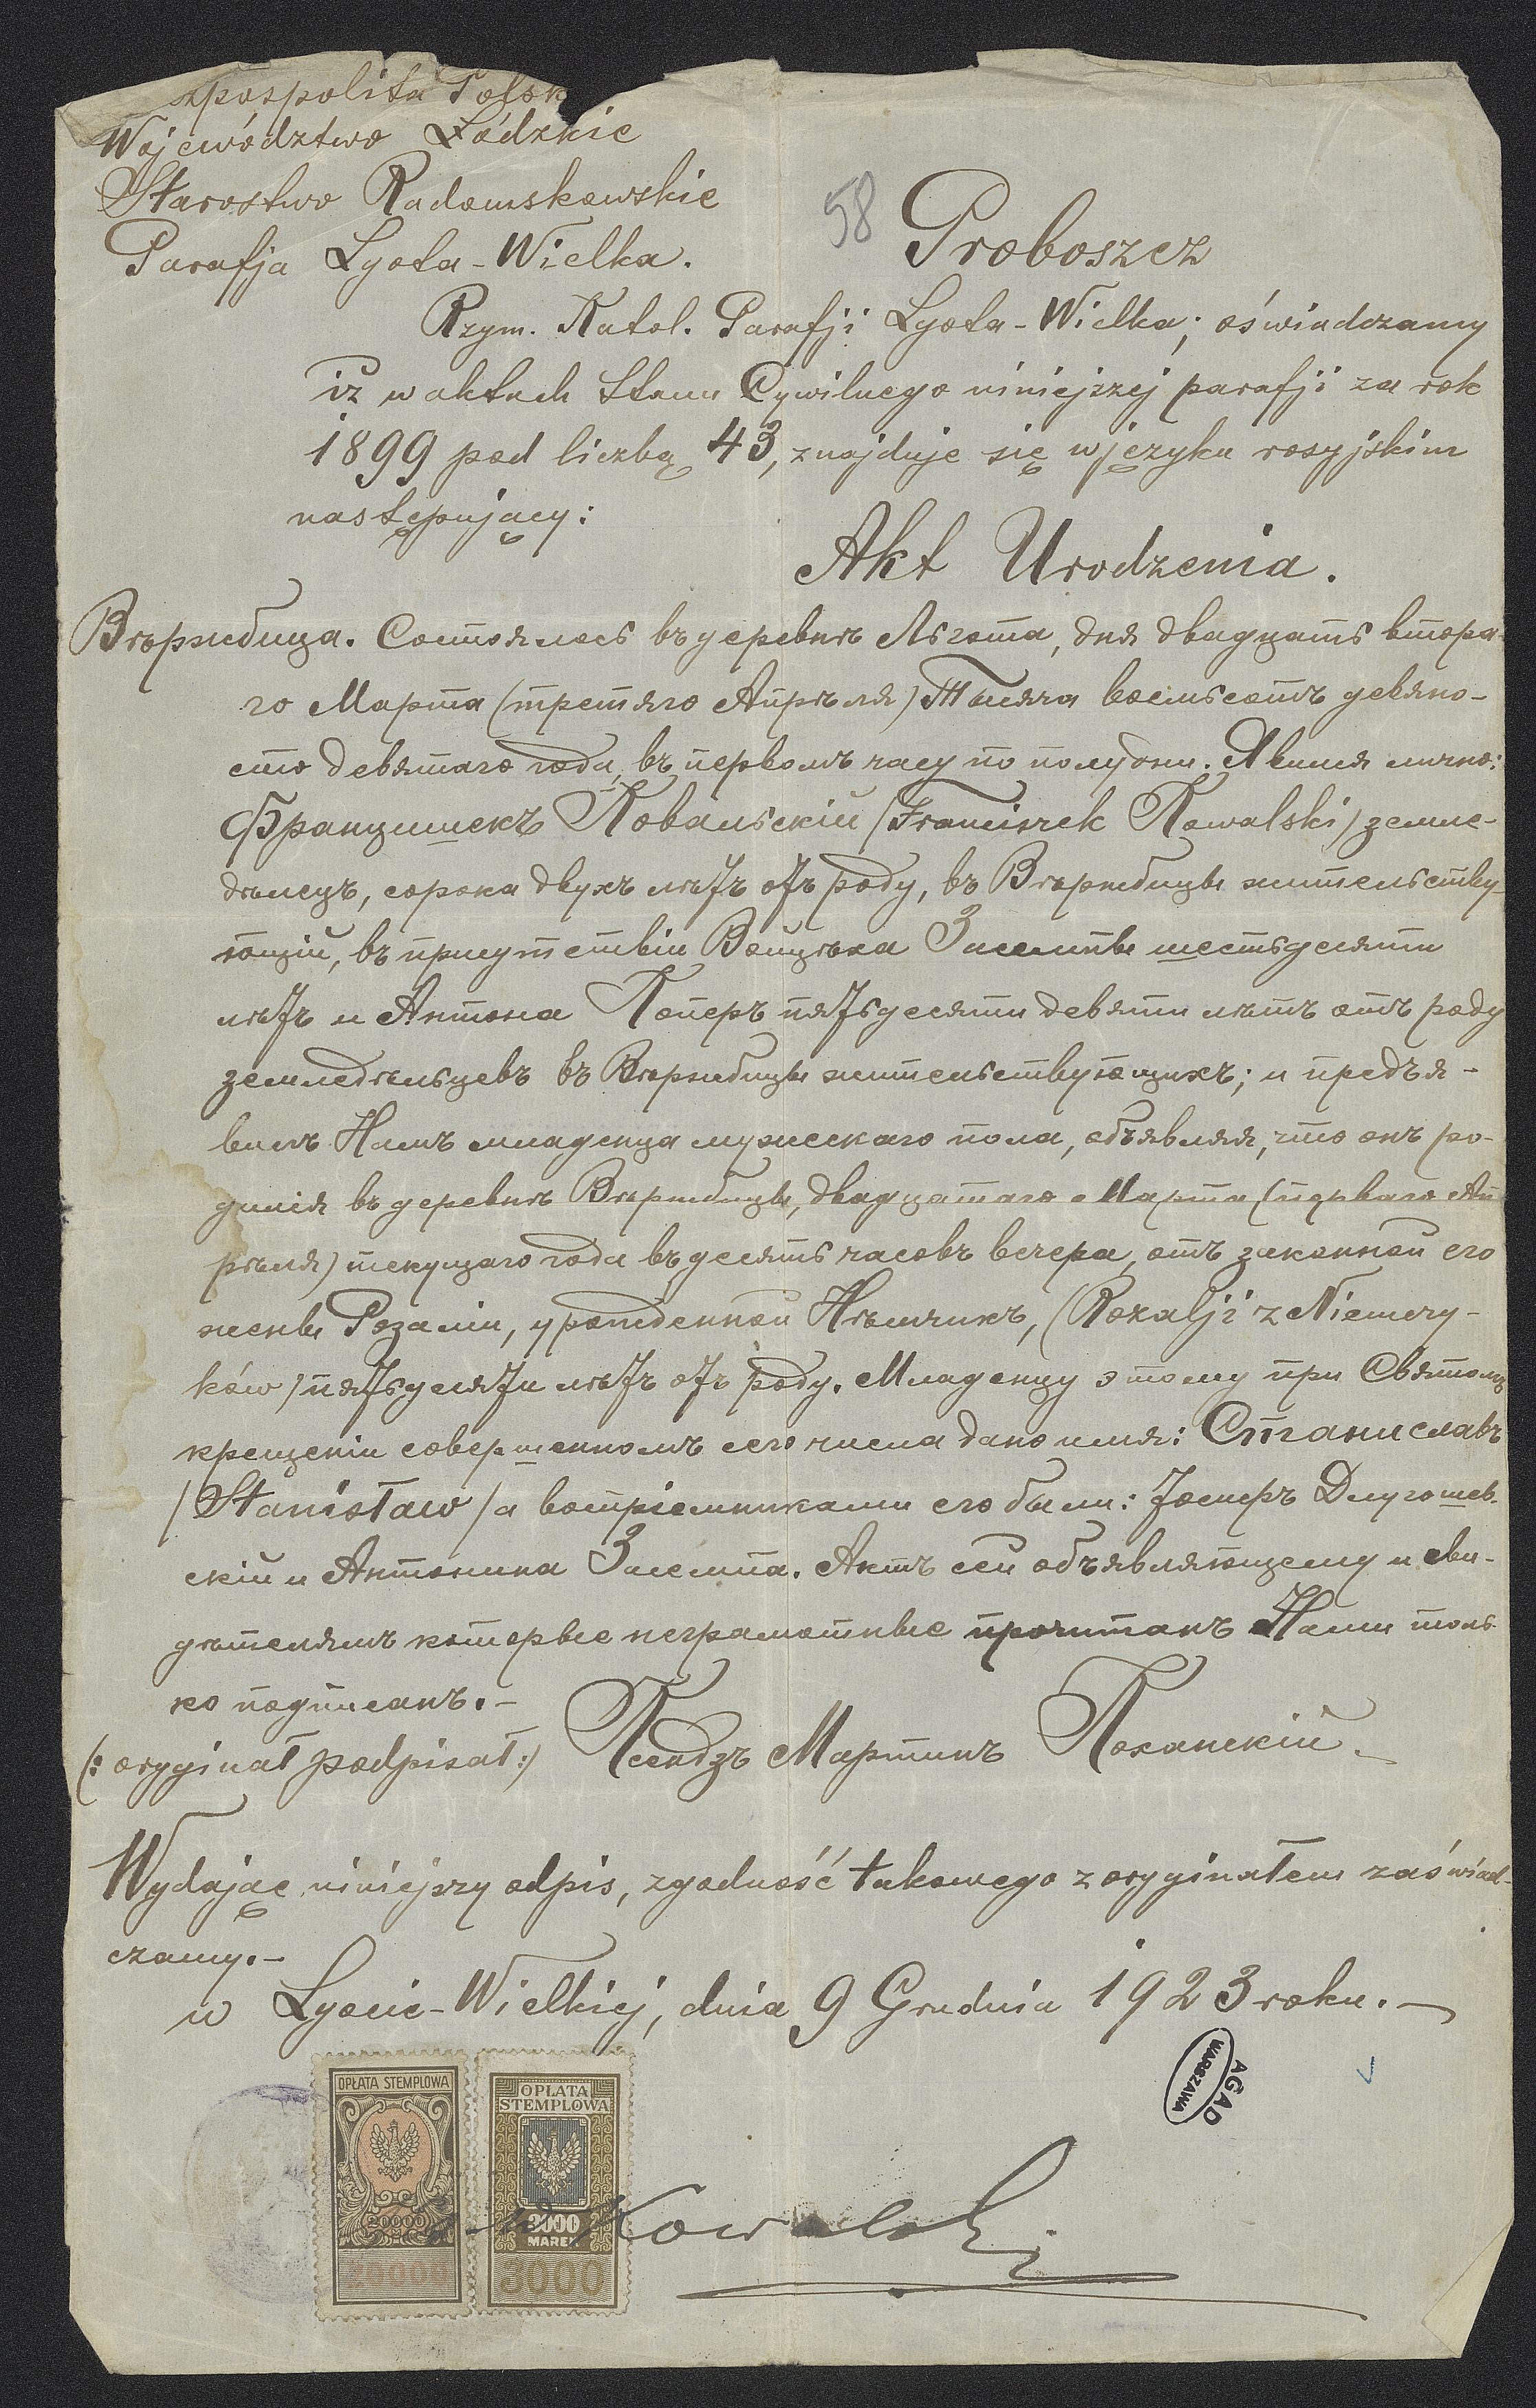 zpospolita Polsk
Województwo Łódzkie
Starostwo Radomskowskie
Parafja Lgota-Wielka.
58
Proboszcz
Rzym. Katol. Parafji Lgota-Wielka; oświadczamy
iż w aktach Stanu Cywilnego niniejszej parafji za rok
1899 pod liczbą 43, znajduje się w języku rosyjskim
następujący:
Akt Urodzenia.
Вѣржбица. Состоялось въ деревнѣ Льгота, дня двадцать втора-
го Марта (третяго Апрѣля) Тысяча восемьсотъ девяно-
сто девятаго года, въ первомъ часу по полудни. Явился лично:
Францишекъ Ковальскій (Franciszek Kowalski) земле-
дѣлецъ, сорока двухъ лѣтъ отъ роду, въ Вѣржбицы жительству-
ющій, въ присутствіи Войцѣха шестьдесяти
лѣтъ и Антона Коперъ пятьдесяти девяти лѣтъ отъ роду
земледѣльцевъ въ Вѣржбицы жительствующихъ; и предъя-
вилъ Намъ младенца мужескаго пола, объявляя, что онъ ро-
дился въ деревнѣ Вѣржбицы, двадцатаго Марта (перваго Ап-
рѣля) текущаго года въ десять часовъ вечера, отъ законной его
жены Розаліи, урожденной Нѣмчикъ, (Rozalji z Niemczy-
ków) лѣтъ отъ роду. Младенцу этому при Святомъ
крещеніи совершенномъ сего числа дано имя: Станиславъ
(Stanisław) а воспріемниками его были: Длугошев-
скій и Антонина Актъ сей объявляющему и сви-
дѣтелямъ которые неграмотные прочитанъ Нами толь-
ко подписанъ.-
(: oryginał podpisał:) Ксендзъ Мартинъ Коханскій.-
Wydając niniejszy odpis, zgodność takowego z oryginałem zaświad-
czamy.-
w Lgocie-Wielkiej, dnia 9 Grudnia 1923 roku.-
OPŁATA STEMPLOWA
20000
20000
OPŁATA
STEMPLOWA
3000
MAREK
3000
AGAD
WARSZAWA
Kowalski